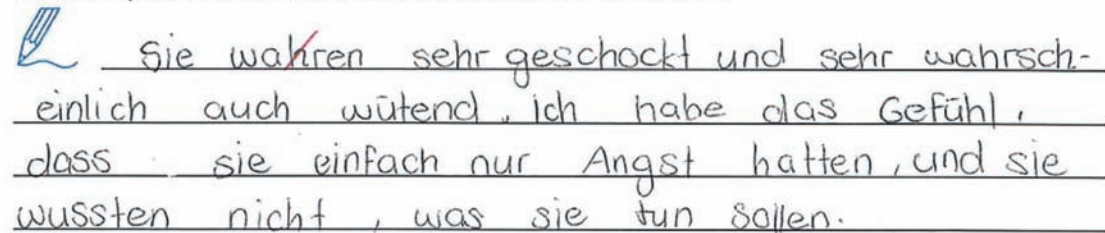 Sie wahren sehr geschockt und sehr wahrsch-
einlich auch wütend, ich habe das Gefühl,
dass sie einfach nur Angst hatten, und sie
wussten nicht, was sie tun sollen.